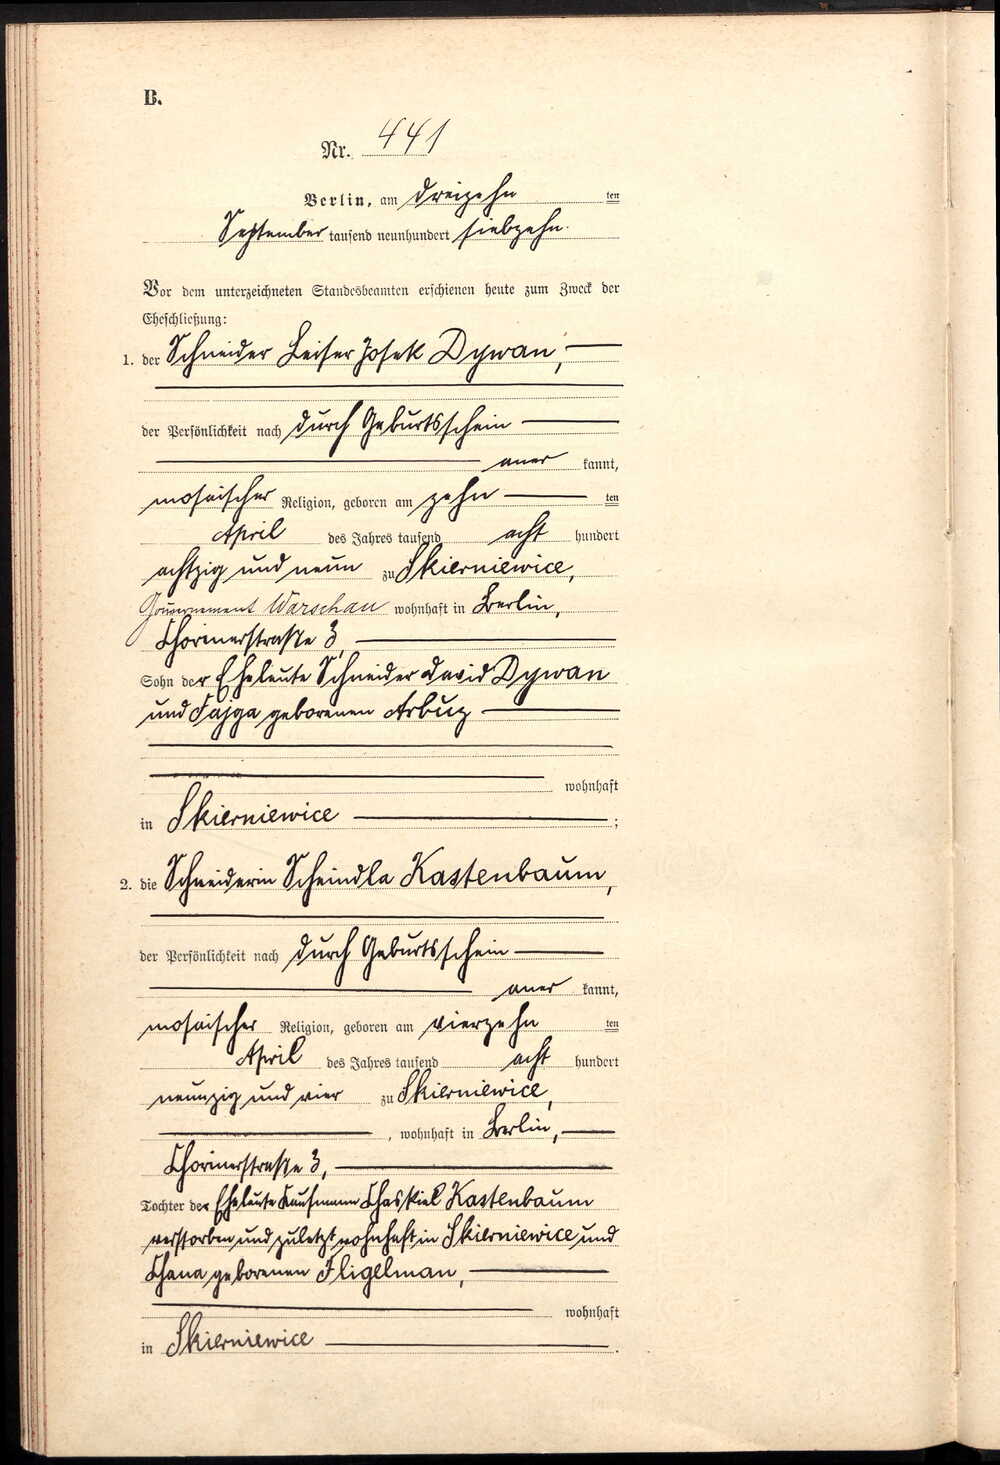 B.
Nr. 441
Berlin, am dreizehn ten
September tausend neunhundert siebzehn.
Vor dem unterzeichneten Standesbeamten erschienen heute zum Zweck der
Eheschließung:
1. der Schneider Leiser Josek Dywan,
der Persönlichkeit nach durch Geburtsschein
aner kannt,
mosaischer Religion, geboren am zehn ten
April des Jahres tausend acht hundert
achtzig und neun zu Skierniewice,
Gouvernement Warschau wohnhaft in Berlin,
Chorinerstraße 3,
Sohn der Eheleute Schneider David Dywan
und Fajga geborenen Arbuz
wohnhaft
in Skierniewice ;
2. die Schneiderin Scheindla Kastenbaum,
der Persönlichkeit nach durch Geburtsschein
aner kannt,
mosaischer Religion, geboren am vierzehn ten
April des Jahres tausend acht hundert
neunzig und vier zu Skierniewice,
, wohnhaft in Berlin,
Chorinerstraße 3,
Tochter der Eheleute Kaufmann Chaskiel Kastenbaum
verstorben und zuletzt wohnhaft in Skierniewice und
Chana geborenen Fligelman,
wohnhaft
in Skierniewice .